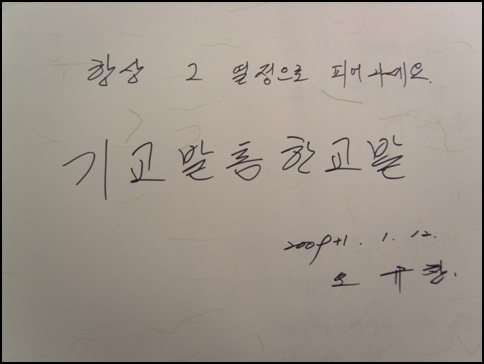 항상 그 열정으로 피어나세요.
기고만통한고말
2009+1. 1. 12.
오 규